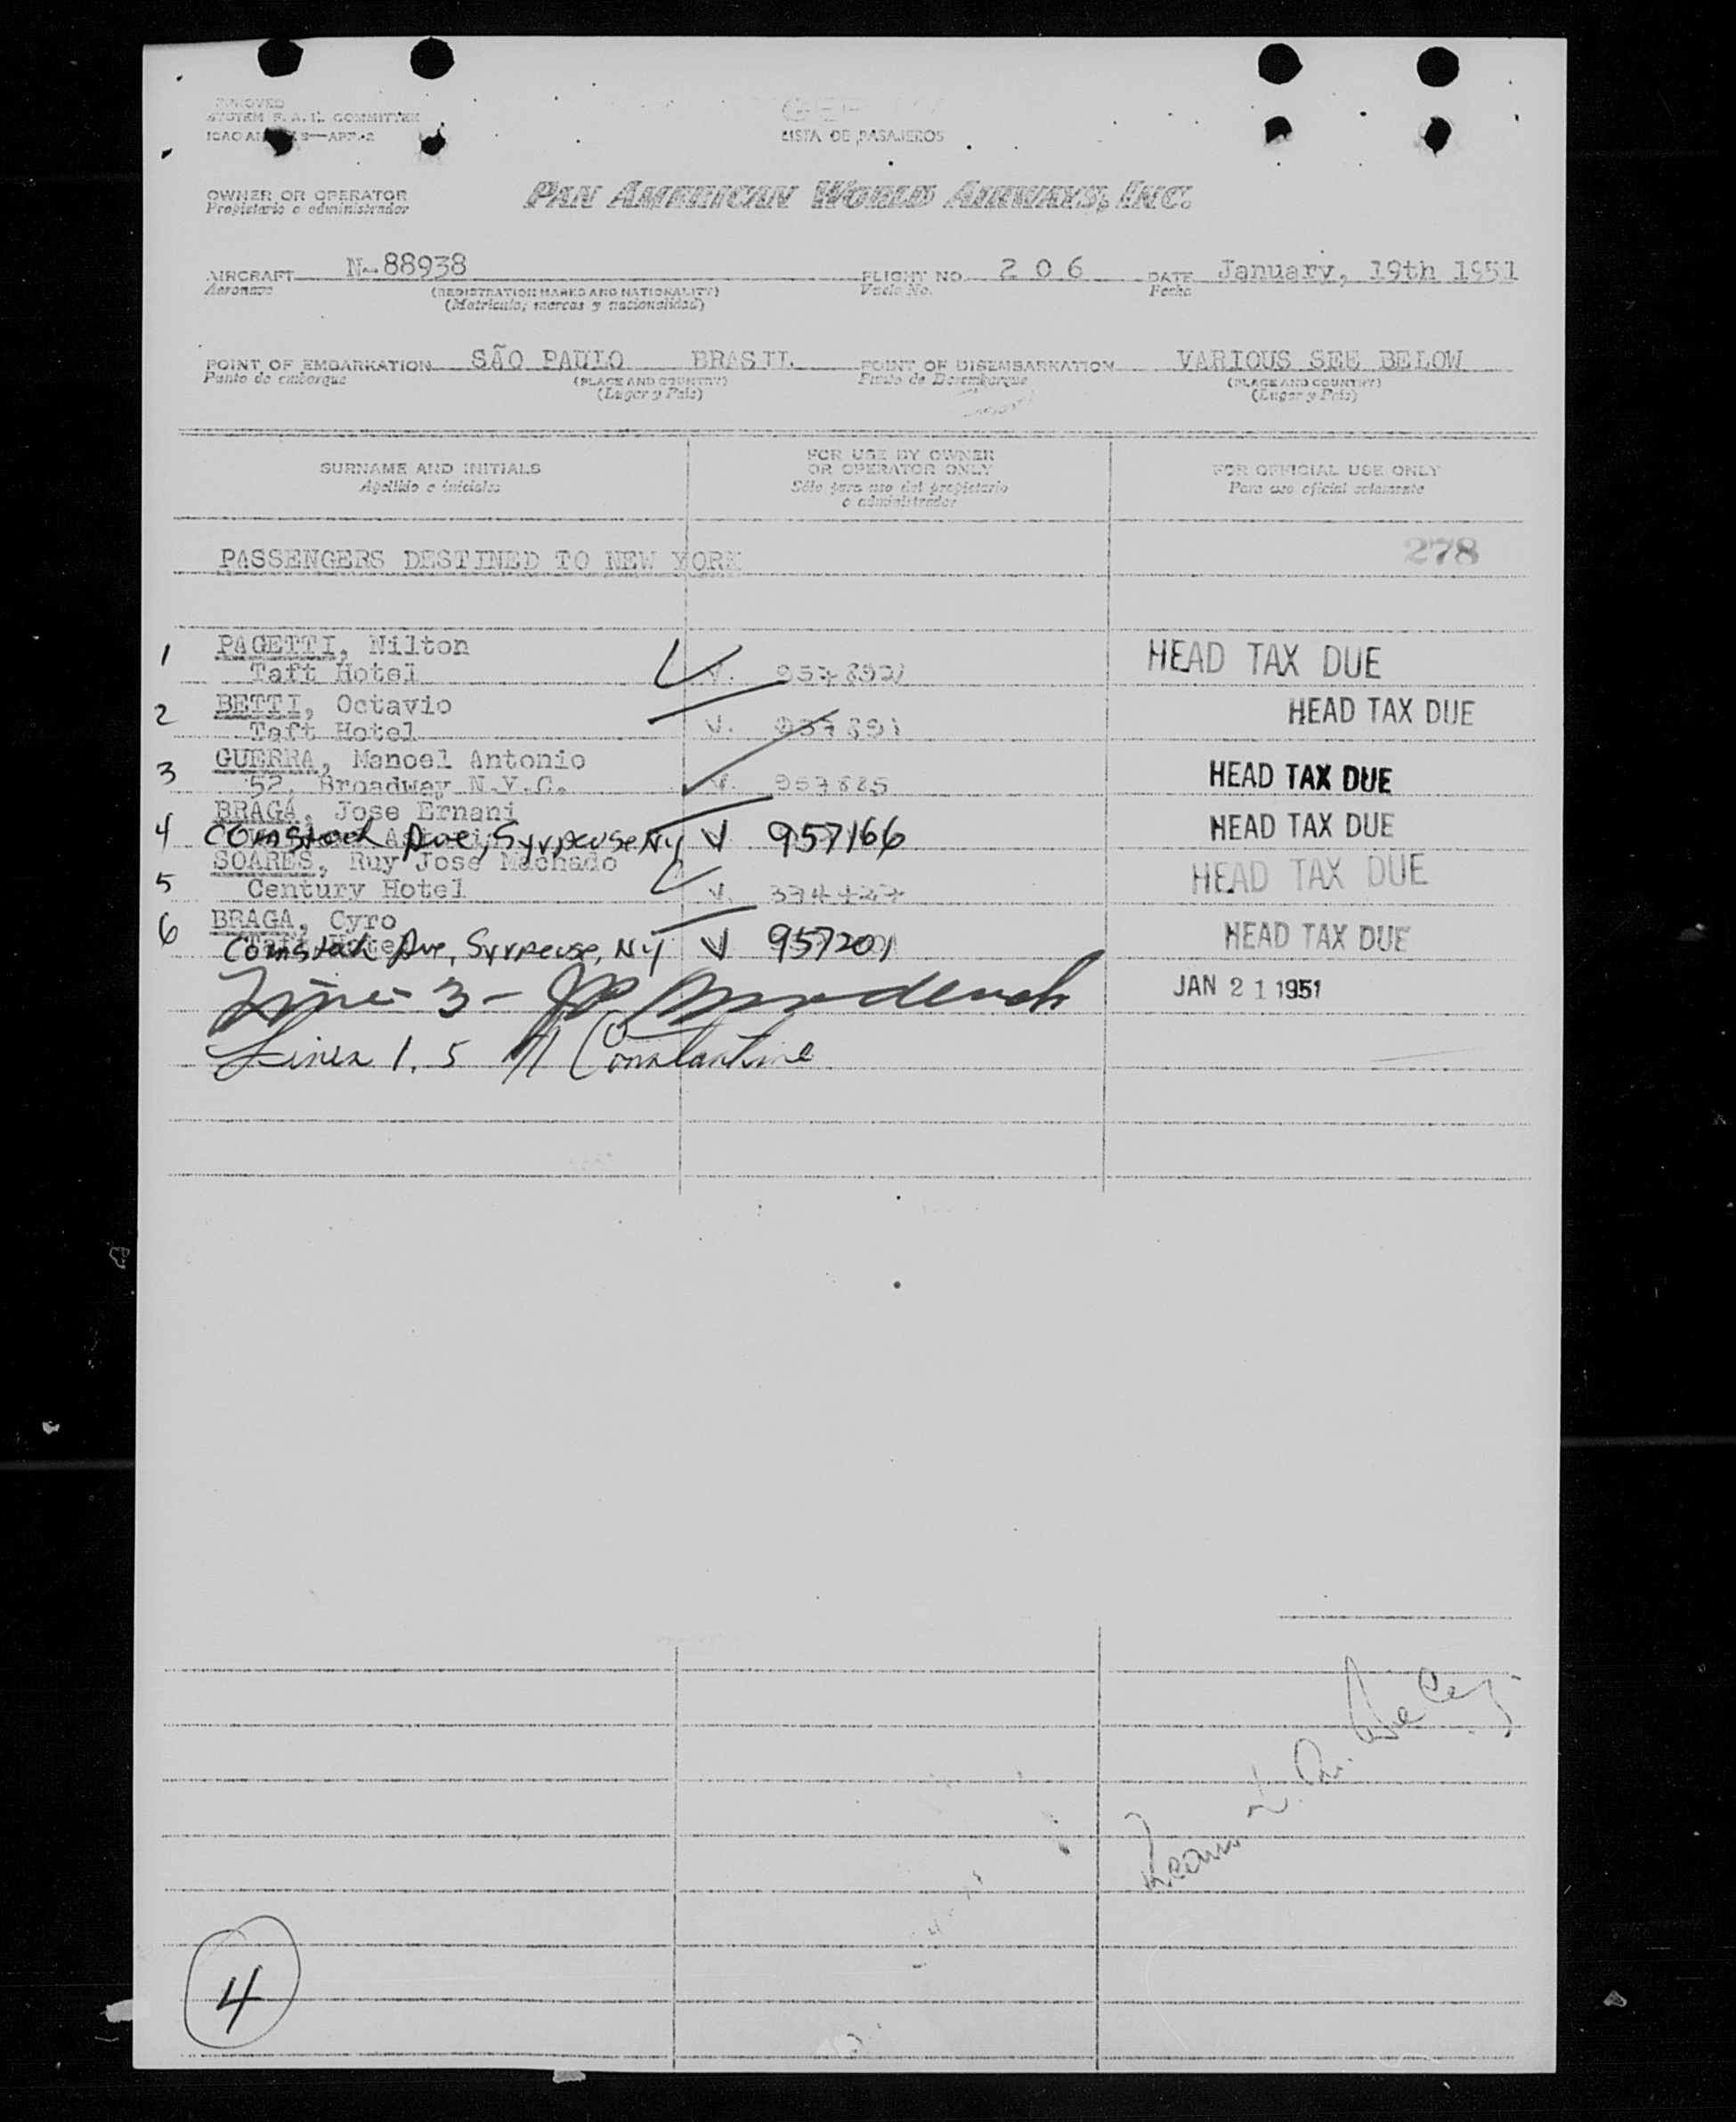 SYSTEM F. A. L. COMMITTEE
LISTA DE PASAJEROS
OWNER OR OPERATOR
Propietario o administrador
PAN AMERICAN WORLD AIRWAYS, INC.
AIRCRAFT N-88938 FLIGHT NO. 206 DATE January, 19th 1951
Aeronave (REGISTRATION MARKS AND NATIONALITY) Vuelo No. Fecha
(Matricula, marcas y nacionalidad)
POINT OF EMBARKATION SÃO PAULO BRASIL POINT OF DISEMBARKATION VARIOUS SEE BELOW
Punto de embarque (PLACE AND COUNTRY) Punto de Desembarque (PLACE AND COUNTRY)
(Lugar y Pais) (Lugar y Pais)
SURNAME AND INITIALS FOR USE BY OWNER OR OPERATOR ONLY FOR OFFICIAL USE ONLY
Apellido e iniciales Sólo para uso del propietario o administrador Para uso oficial solamente
PASSENGERS DESTINED TO NEW YORK 278
1 PAGETTI, Nilton HEAD TAX DUE
Taft Hotel V.
2 BETTI, Octavio HEAD TAX DUE
Taft Hotel V. 957891
3 GUERRA, Manoel Antonio HEAD TAX DUE
52, Broadway N.Y.C. V. 957885
BRAGA, Jose Ernani
4 Comstock Ave, Syracuse NY V 957166 HEAD TAX DUE
SOARES, Ruy Jose Machado
5 Century Hotel V. HEAD TAX DUE
6 BRAGA, Cyro HEAD TAX DUE
Comstock Ave, Syracuse, NY V 957201
Line 3 - JAN 21 1951
Lines 1, 5 Constantine
4